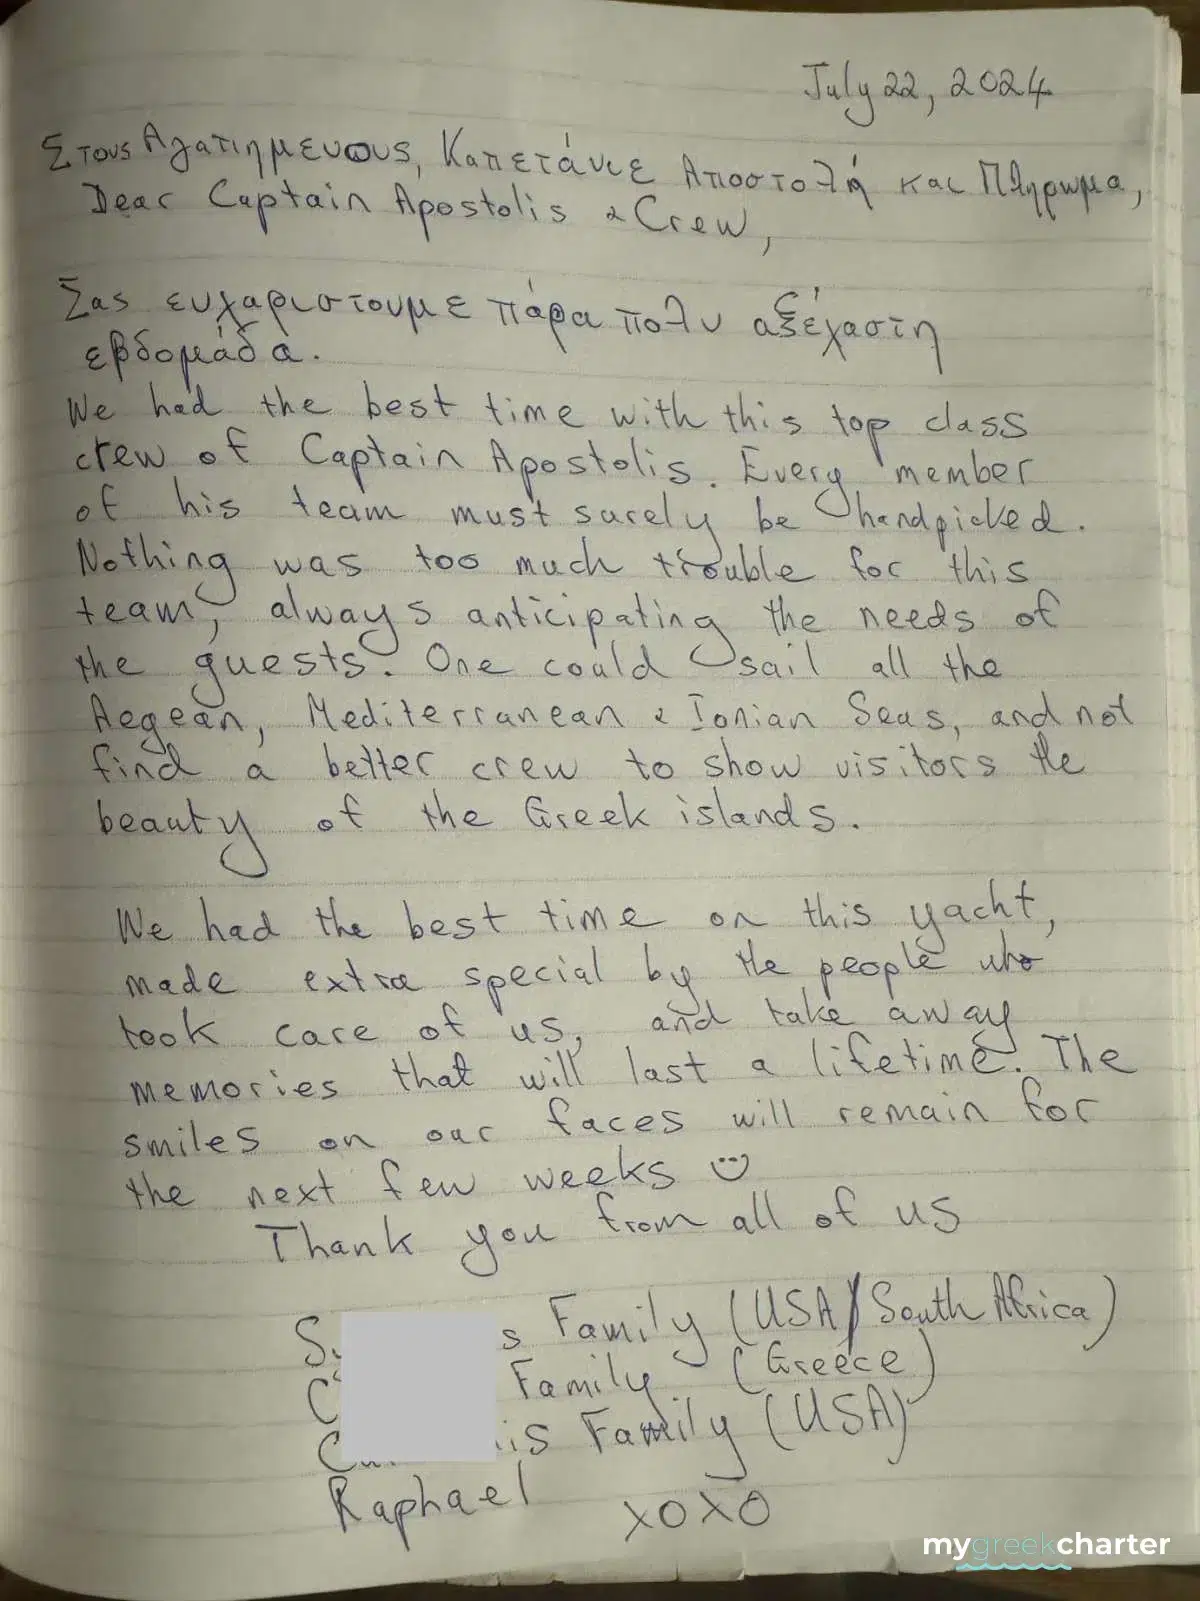 July 22, 2024
Στους Αγατιημενους, Καπετάνιε Αποστολή και Πληρωμα,
Dear Captain Apostolis & Crew,
Σας ευχαριστουμε πάρα πολυ αξέχαστη
εβδομάδα.
We had the best time with this top class
crew of Captain Apostolis. Every member
of his team must surely be handpicked.
Nothing was too much trouble for this
team, always anticipating the needs of
the guests. One could sail all the
Aegean, Mediterranean & Ionian Seas, and not
find a better crew to show visitors the
beauty of the Greek islands.
We had the best time on this yacht,
made extra special by the people who
took care of us, and take away
memories that will last a lifetime. The
smiles on our faces will remain for
the next few weeks
Thank you from all of us
Family (USA/South Africa)
Family (Greece)
Family (USA)
Raphael XOXO
mygreekcharter